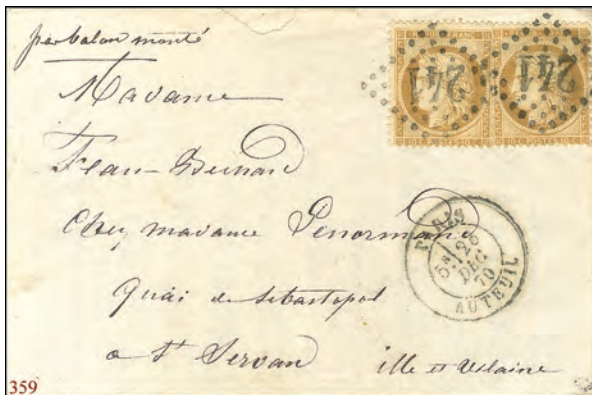 par balon monté
Madame
Jean-Durand
chez madame Lenormand
quai de Sebastopol
a St Servan ille et vilaine
241
241
PARIS
5E 26
DEC
70
AUTEUIL
359